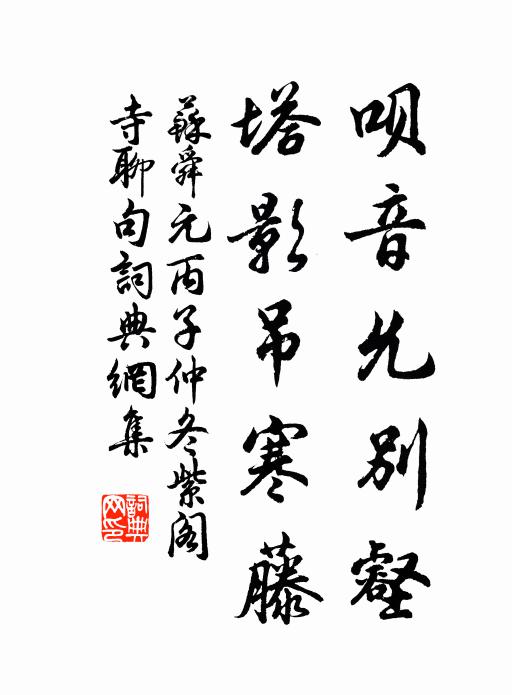 唄音充別壑
塔影吊寒藤
蘇舜元丙子仲冬紫閣
寺聊句詞典網集
詞典網印